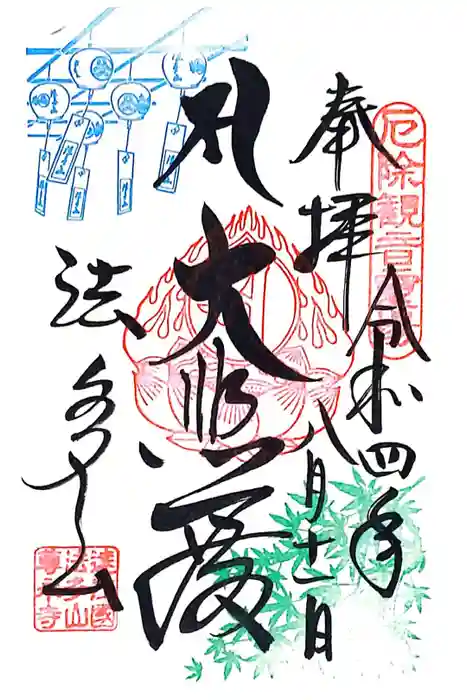 厄除観音霊場
奉拝
令和四年
八月十一日
大悲殿
法多山
遠江國
法多山
尊永寺